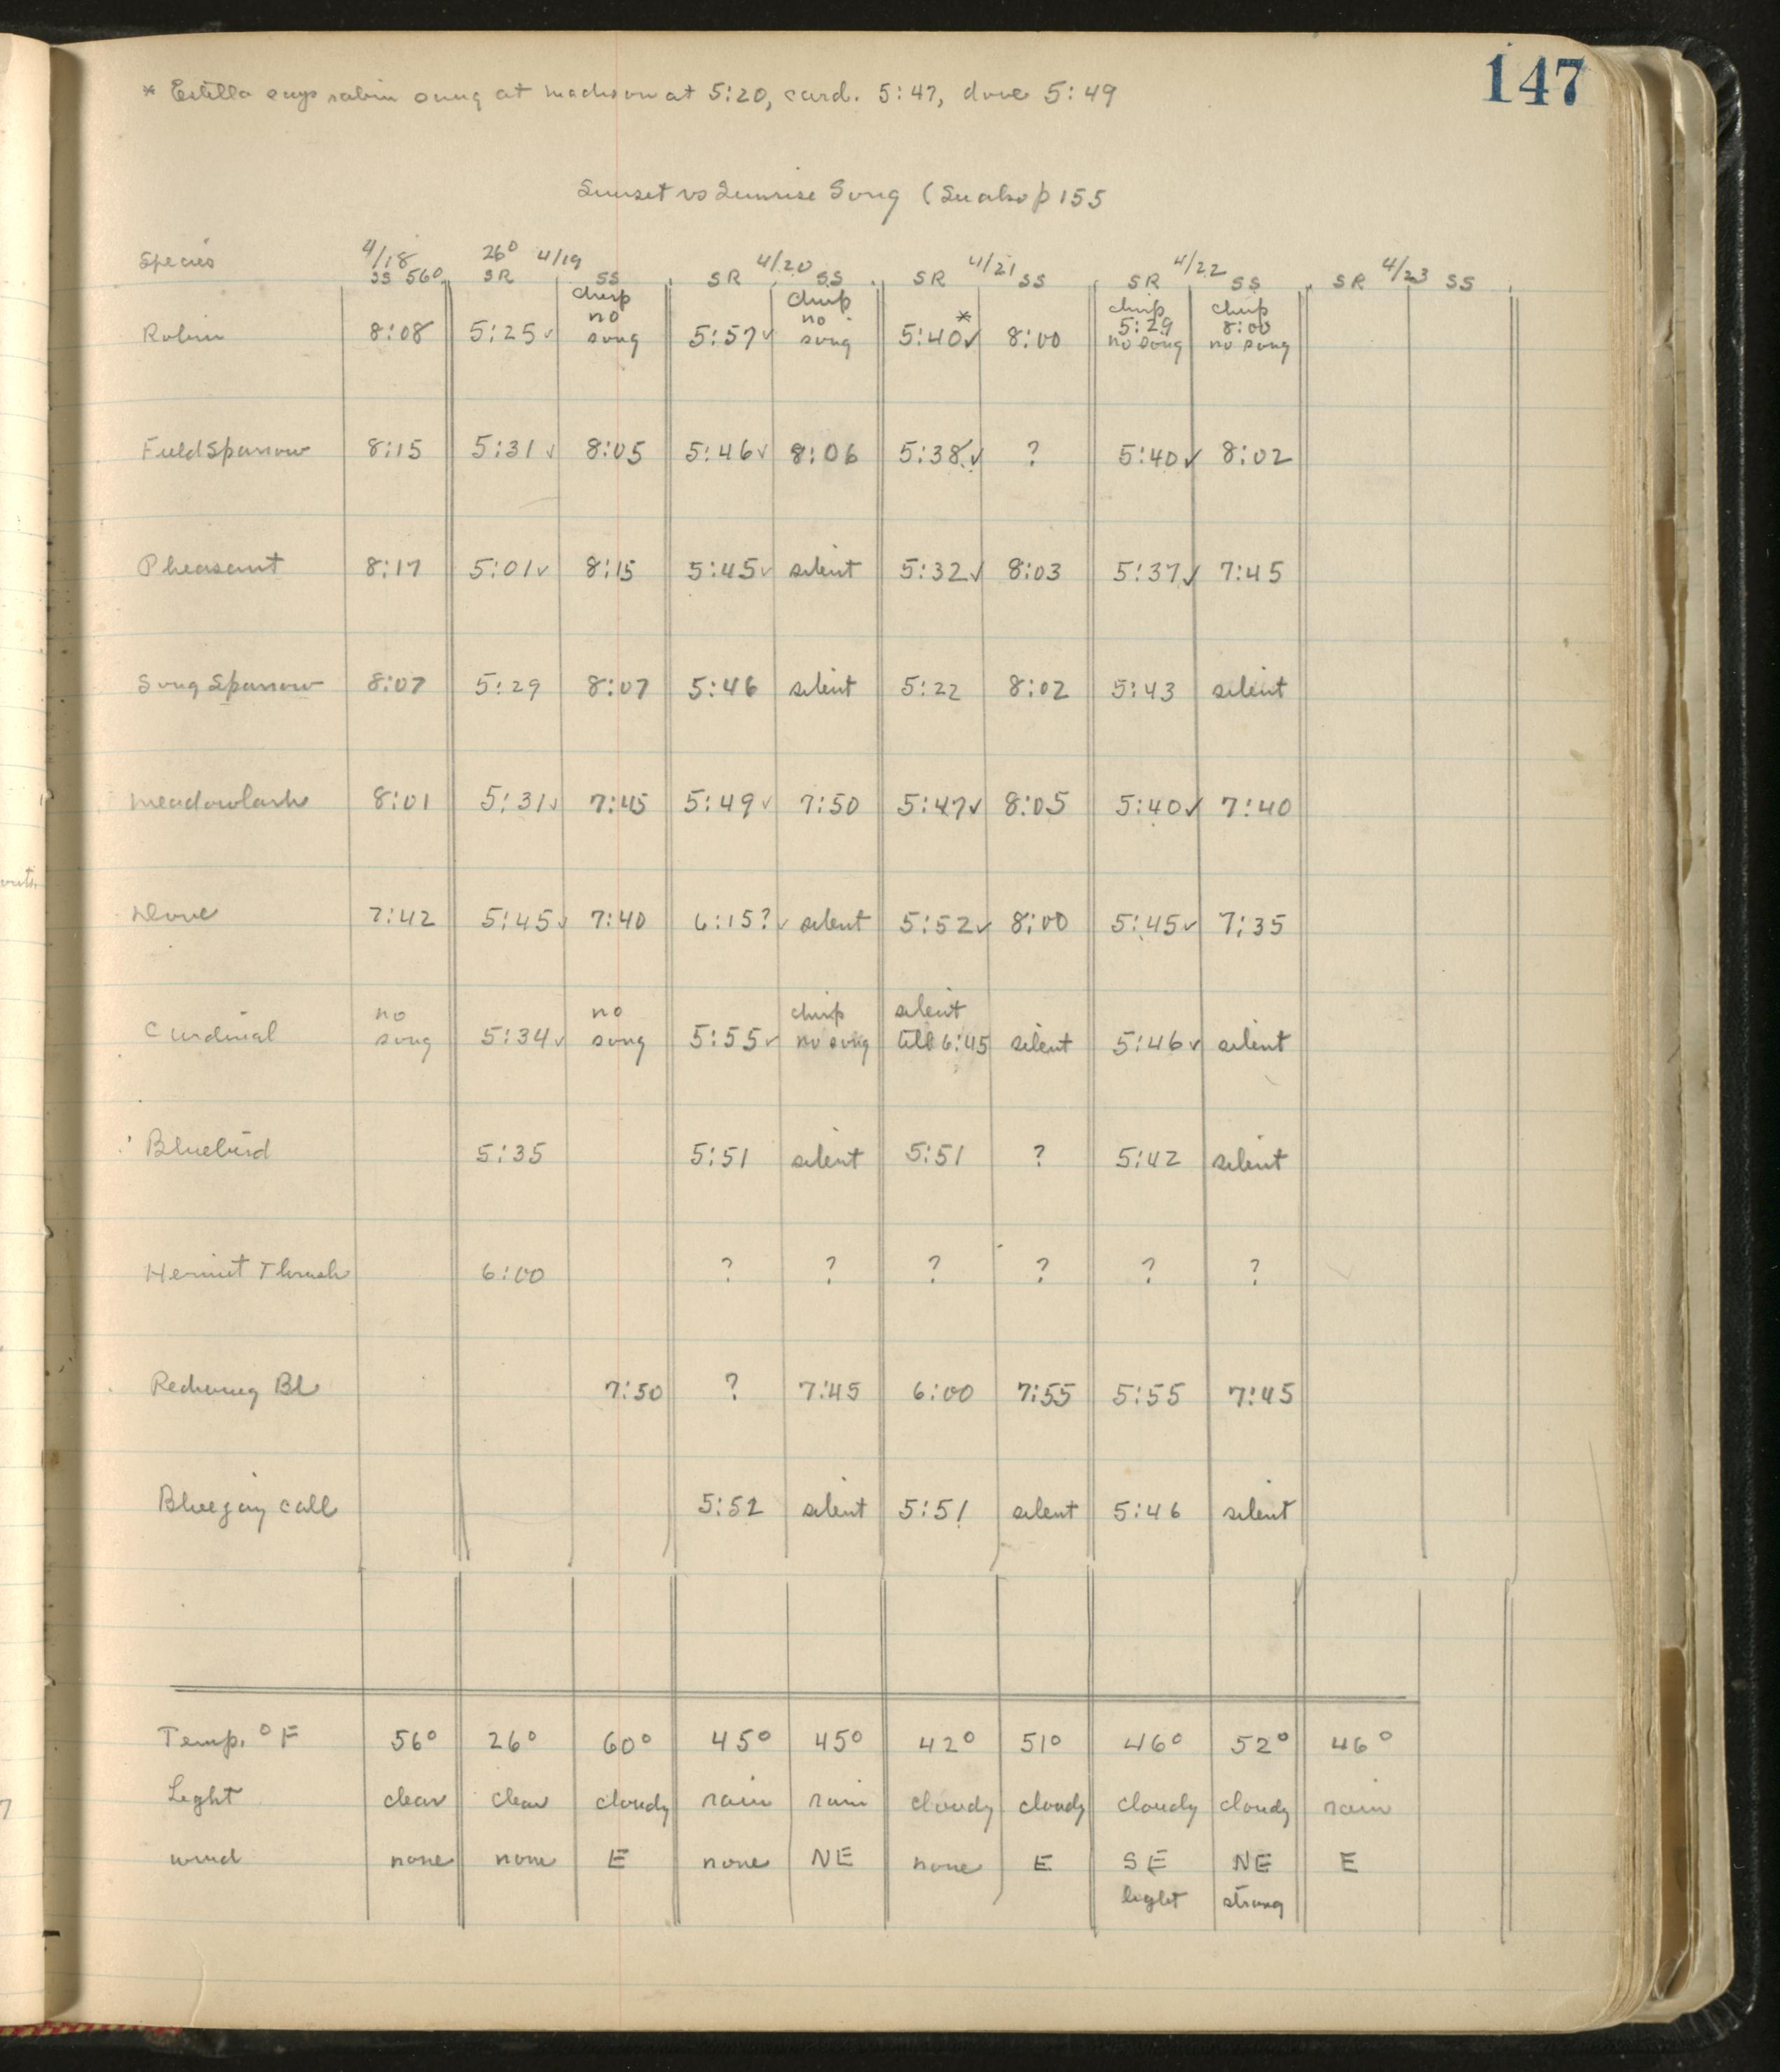 147
* Estella says robin sung at Madison at 5:20, card. 5:47, dove 5:49
Sunset vs Sunrise Song (See also p 155
Species 4/18 26° 4/19 4/20 4/21 4/22 4/23
SS 56° SR SS SR SS SR SS SR SS SR SS
Robin 8:08 5:25✓ chirp no song 5:57✓ chirp no song 5:40✓* 8:00 chirp 5:29 no song chirp 8:00 no song
Field Sparrow 8:15 5:31✓ 8:05 5:46✓ 8:06 5:38✓ ? 5:40✓ 8:02
Pheasant 8:17 5:01✓ 8:15 5:45✓ silent 5:32✓ 8:03 5:37✓ 7:45
Song Sparrow 8:07 5:29 8:07 5:46 silent 5:22 8:02 5:43 silent
Meadowlark 8:01 5:31✓ 7:45 5:49✓ 7:50 5:47✓ 8:05 5:40✓ 7:40
Dove 7:42 5:45✓ 7:40 6:15?✓ silent 5:52✓ 8:00 5:45✓ 7:35
Cardinal no song 5:34✓ no song 5:55✓ chirp no song silent till 6:45 silent 5:46✓ silent
Bluebird 5:35 5:51 silent 5:51 ? 5:42 silent
Hermit Thrush 6:00 ? ? ? ? ? ?
Redwing Bl 7:50 ? 7:45 6:00 7:55 5:55 7:45
Bluejay call 5:52 silent 5:51 silent 5:46 silent
Temp. °F 56° 26° 60° 45° 45° 42° 51° 46° 52° 46°
Light clear clear cloudy rain rain cloudy cloudy cloudy cloudy rain
wind none none E none NE none E SE light NE strong E